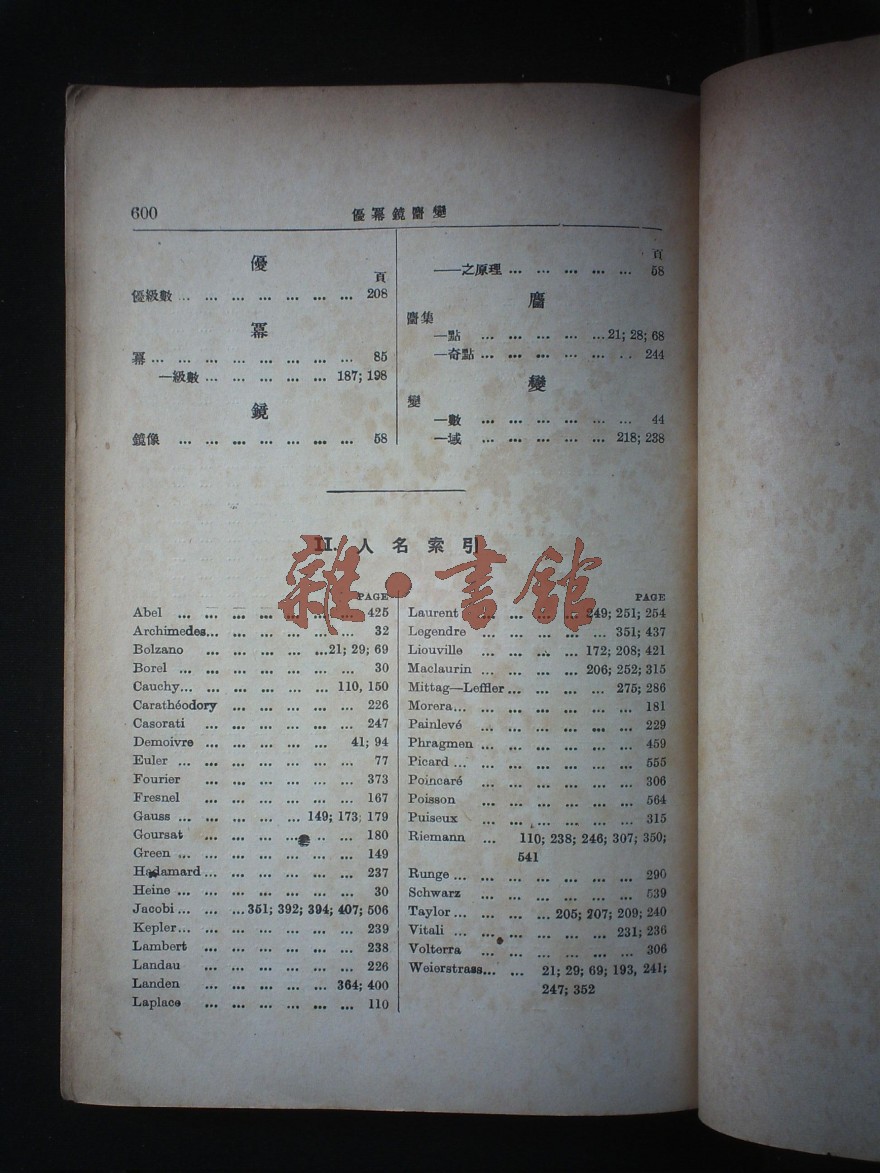 600
優冪鏡䧹變
優
頁
優級數 ... ... ... ... ... ... ... 208
冪
冪 ... ... ... ... ... ... ... ... 85
—級數 ... ... ... ... ... 187; 198
鏡
鏡像 ... ... ... ... ... ... ... 58
頁
——之原理 ... ... ... ... ... 58
集
—點 ... ... ... ... ...21; 28; 68
—奇點 ... ... ... ... ... ... 244
變
變
—數 ... ... ... ... ... ... 44
—域 ... ... ... ... ... 218; 238
II. 人名索引
雜·書館
PAGE
Abel ... ... ... ... ... ... ... 425
Archimedes... ... ... ... ... ... 32
Bolzano ... ... ... ... ...21; 29; 69
Borel ... ... ... ... ... ... ... 30
Cauchy... ... ... ... ... ... 110, 150
Carathéodory ... ... ... ... ... 226
Casorati ... ... ... ... ... ... 247
Demoivre ... ... ... ... ... 41; 94
Euler ... ... ... ... ... ... ... 77
Fourier ... ... ... ... ... ... 373
Fresnel ... ... ... ... ... ... 167
Gauss ... ... ... ... ... 149; 173; 179
Goursat ... ... ... ... ... ... 180
Green ... ... ... ... ... ... ... 149
Hadamard ... ... ... ... ... ... 237
Heine ... ... ... ... ... ... ... 30
Jacobi ... ... ...351; 392; 394; 407; 506
Kepler... ... ... ... ... ... ... 239
Lambert ... ... ... ... ... ... 238
Landau ... ... ... ... ... ... 226
Landen ... ... ... ... ... 364; 400
Laplace ... ... ... ... ... ... 110
PAGE
Laurent ... ... ... ... 249; 251; 254
Legendre ... ... ... ... ... 351; 437
Liouville ... ... ... ... 172; 208; 421
Maclaurin ... ... ... ... 206; 252; 315
Mittag—Leffler ... ... ... ... 275; 286
Morera... ... ... ... ... ... ... 181
Painlevé ... ... ... ... ... ... 229
Phragmen ... ... ... ... ... ... 459
Picard ... ... ... ... ... ... ... 555
Poincaré ... ... ... ... ... ... 306
Poisson ... ... ... ... ... ... 564
Puiseux ... ... ... ... ... ... 315
Riemann ... 110; 238; 246; 307; 350;
541
Runge ... ... ... ... ... ... ... 290
Schwarz ... ... ... ... ... ... 539
Taylor ... ... ... ... 205; 207; 209; 240
Vitali ... ... ... ... ... ... 231; 236
Volterra ... ... ... ... ... ... 306
Weierstrass... ... 21; 29; 69; 193, 241;
247; 352